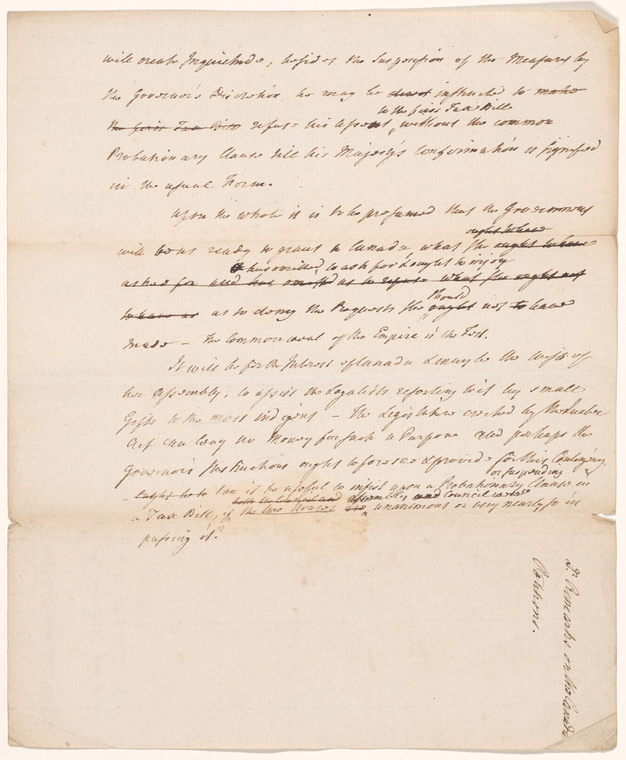 will create Inquietude, besides the Suspension of the Measures by
the Governor's Discretion, he may be direct instructed to make
to the first Tax Bills
the first Tax Bills refuse his Assent, without the common
Probationary Clause till his Majesty's Confirmation is signified
in the usual Form.
Upon the whole it is to be presumed that the Government
ought to have
will be as ready to grant to Canada what she ought to have
has omitted to ask for & ought to enjoy
asked for and has omitted as to refuse what she ought not
should
to have as as to deny the Requests she ought not to have
made — The common weal of the Empire is the Test.
It will be for the Interest of Canada & may be the wish of
her Assembly, to assist the Loyalists resorting to it by small
Gifts to the most indigent — The Legislature erected by the Quebec
Act can levy no Money for such a Purpose and perhaps the
Governor's Instructions ought to foresee & provide for this Contingency
or suspending
– Can it be useful to insist upon a Probationary Clause in
Assembly and Council are
a Tax Bill, if the two Houses unanimous or very nearly so in
passing it?
Dr. Remarks on the Canada
Petitions.